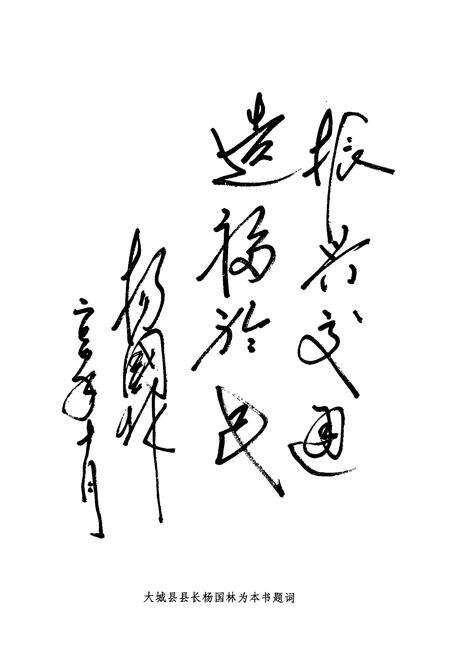 振兴交通
造福於民
杨國林
年十月
大城县县长杨国林为本书题词